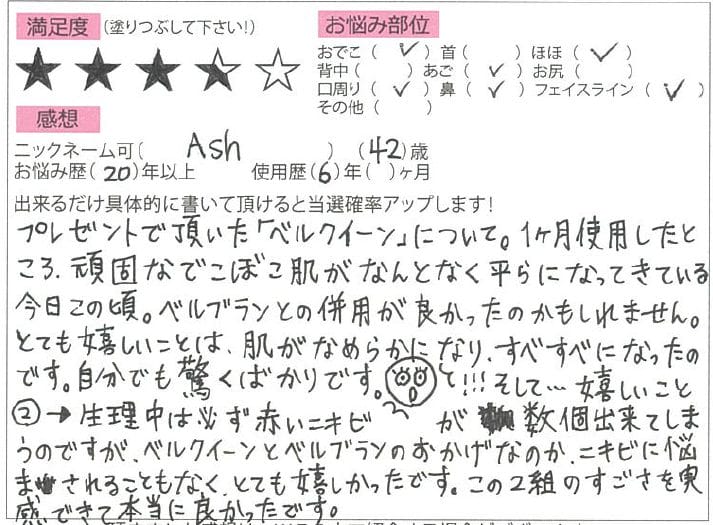 満足度 (塗りつぶして下さい!)
お悩み部位
おでこ( ✓ ) 首( ) ほほ( ✓ )
背中( ) あご( ✓ ) お尻( )
口周り( ✓ ) 鼻( ✓ ) フェイスライン( ✓ )
その他( )
感想
ニックネーム可( Ash ) (42)歳
お悩み歴(20)年以上 使用歴(6)年( )ヶ月
出来るだけ具体的に書いて頂けると当選確率アップします!
プレゼントで頂いた「ベルクイーン」について。1ヶ月使用したと
ころ、頑固なでこぼこ肌がなんとなく平らになってきている
今日この頃。ベルブランとの併用が良かったのかもしれません。
とても嬉しいことは、肌がなめらかになり、すべすべになったの
です。自分でも驚くばかりです。と!!!そして…嬉しいこと
②→生理中は必ず赤いニキビが数個出来てしま
うのですが、ベルクイーンとベルブランのおかげなのか、ニキビに悩
まされることもなく、とても嬉しかったです。この2組のすごさを実
感できて本当に良かったです。